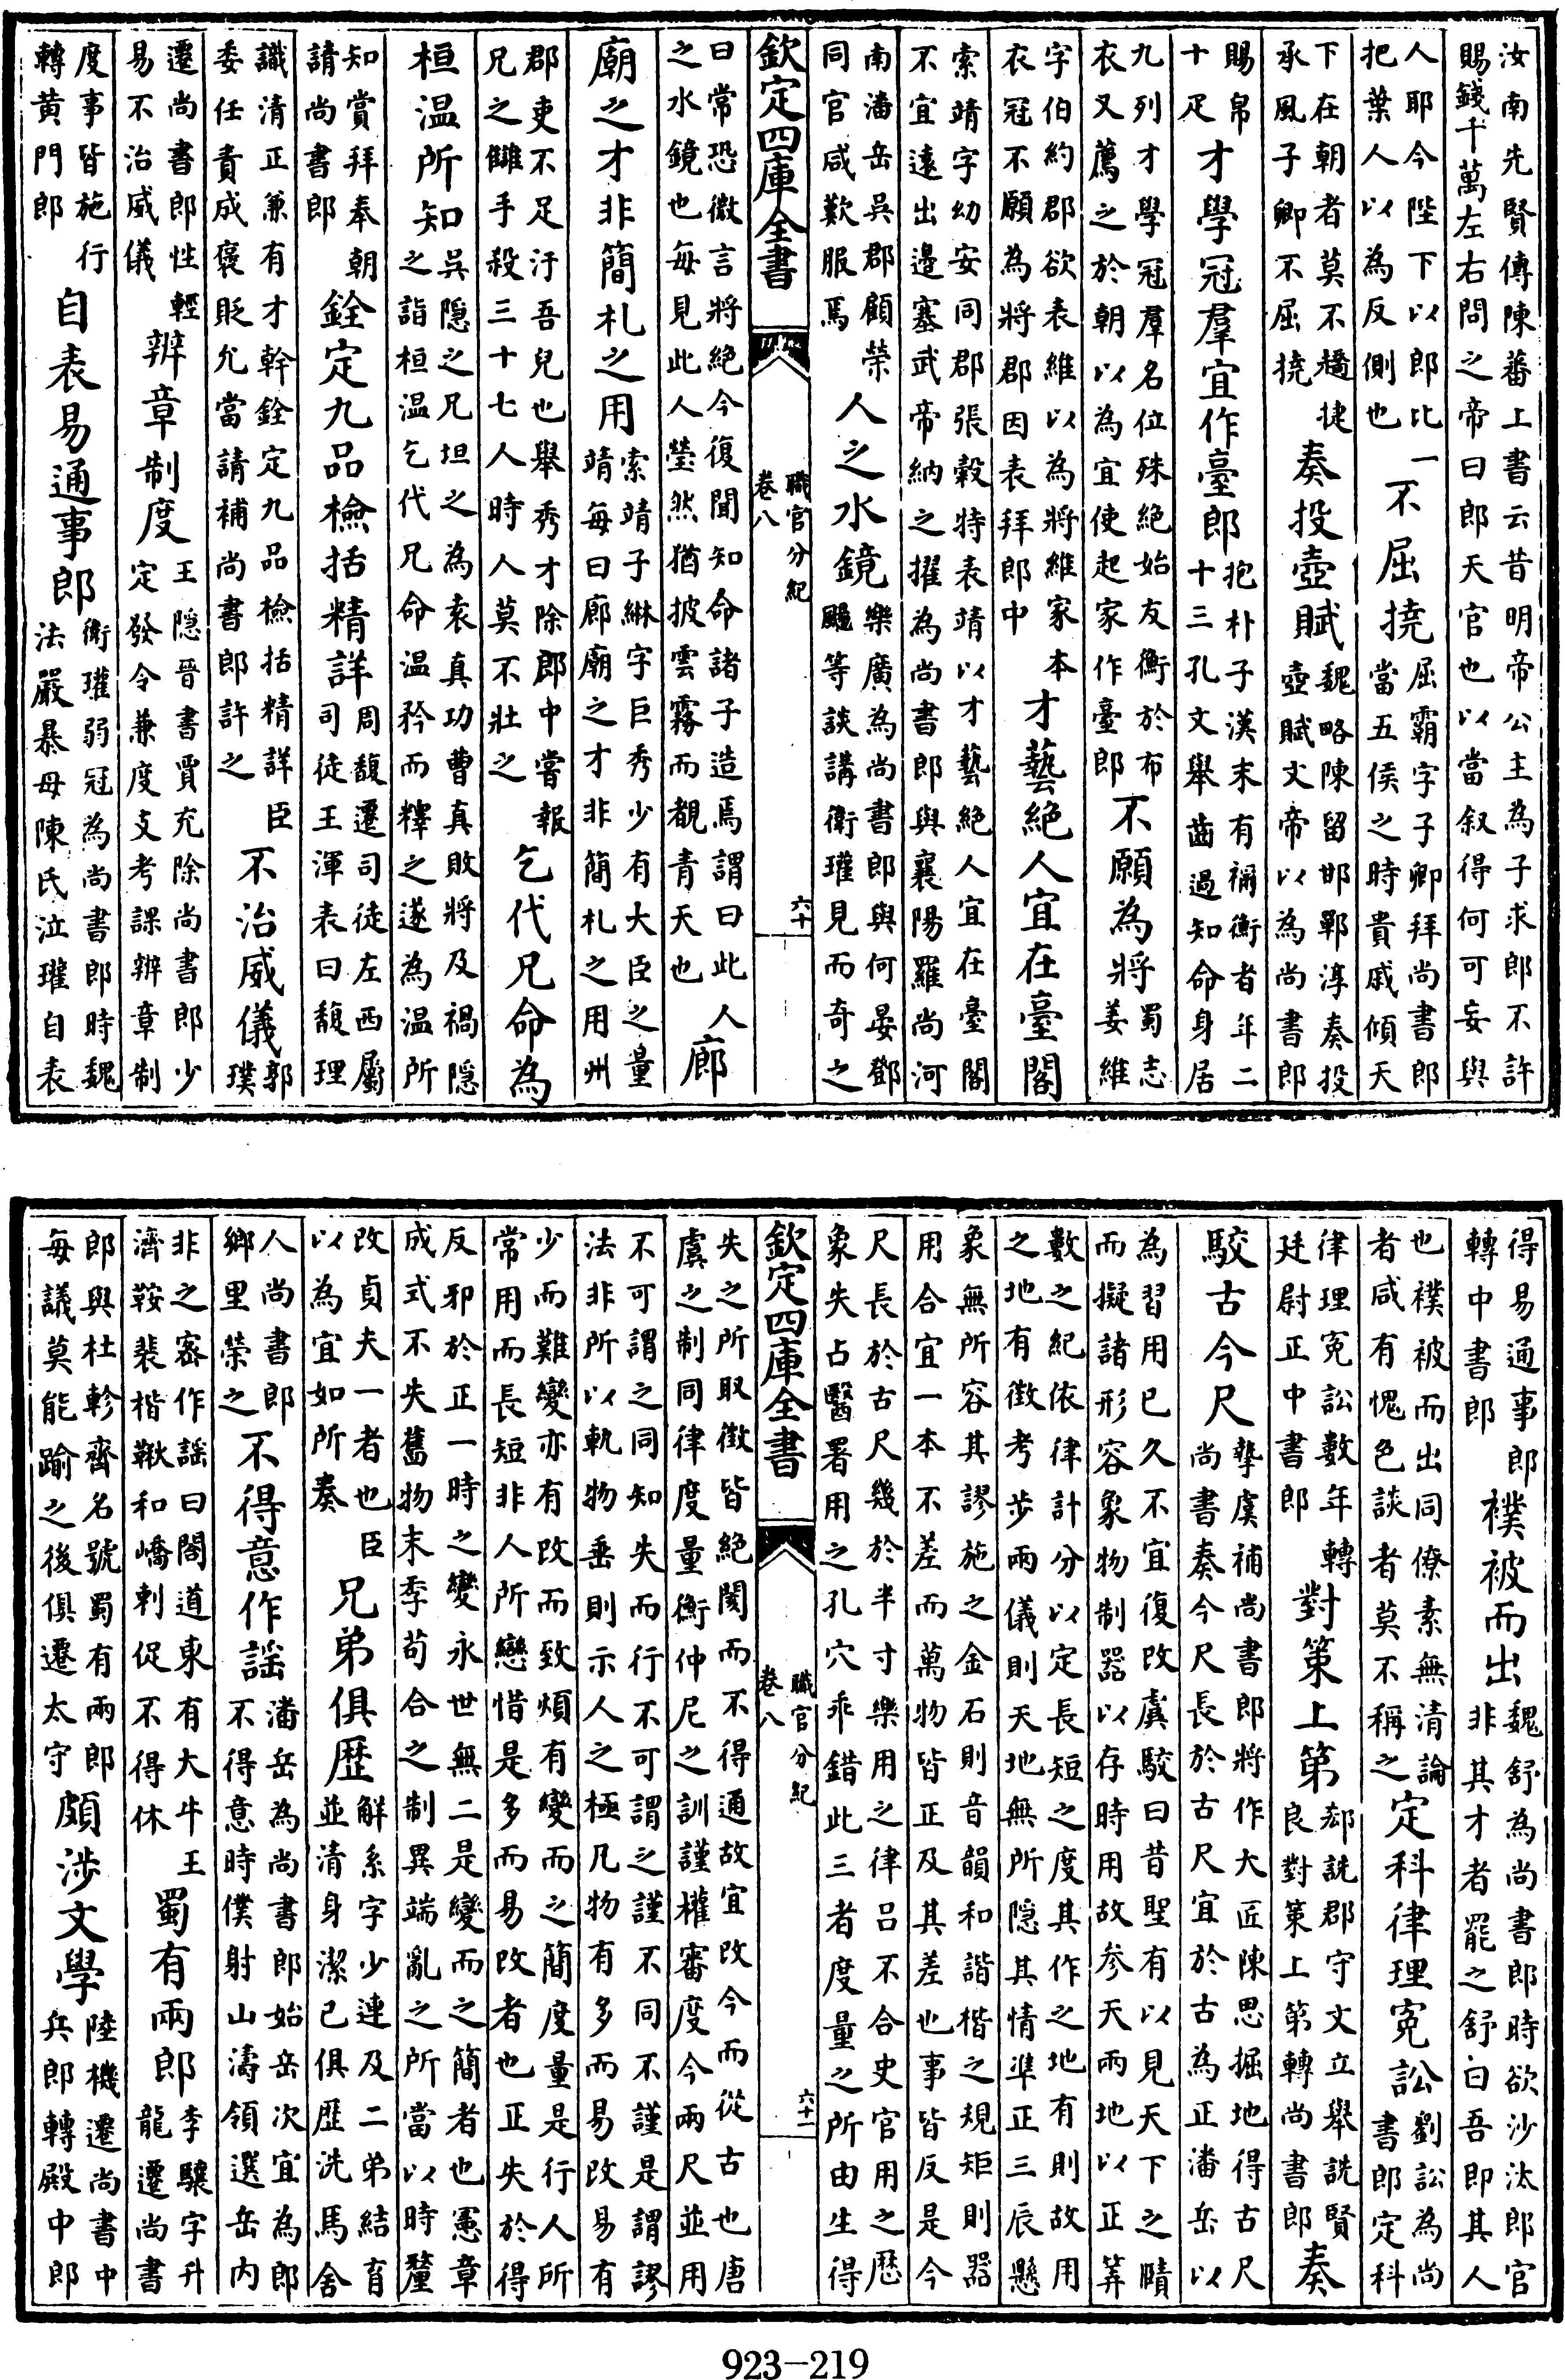 汝南先賢傳陳蕃上書云昔明帝公主為子求郎不許
賜錢千萬左右問之帝曰郎天官也以當叙得何可妄與
人耶今陛下以郎比一把菜人以為反側也不屈撓屈霸字子卿拜尚書郎當五侯之時貴戚傾天
下在朝者莫不趫捷承風子卿不屈撓奏投壺賦魏略陳留邯鄲淳奏投壺賦文帝以為尚書郎
賜帛十疋才學冠羣宜作臺郎抱朴子漢末有禰衡者年二十三孔文舉齒過知命身居
九列才學冠羣名位殊絕始友衡於布衣又薦之於朝以為宜使起家作臺郎不願為將蜀志姜維
字伯約郡欲表維以為將維家本衣冠不願為將郡因表拜郎中才藝絕人宜在臺閣
索靖字幼安同郡張縠特表靖以才藝絕人宜在臺閣
不宜遠出邊塞武帝納之擢為尚書郎與襄陽羅尚河
南潘岳吳郡顧榮同官咸歎服焉人之水鏡樂廣為尚書郎與何晏鄧颺等談講衛瓘見而奇之
欽定四庫全書
職官分紀
卷八
六十
曰常恐微言將絕今復聞知命諸子造焉謂曰此人之水鏡也每見此人瑩然猶披雲霧而覩青天也廊
廟之才非簡札之用索靖子綝字巨秀少有大臣之量靖每曰廊廟之才非簡札之用州
郡吏不足汙吾兒也舉秀才除郎中嘗報兄之讎手殺三十七人時人莫不壯之乞代兄命為
桓温所知吳隐之兄坦之為袁真功曹真敗將及禍隐之詣桓温乞代兄命温矜而釋之遂為温所
知賞拜奉朝請尚書郎銓定九品檢括精詳周馥遷司徒左西屬司徒王渾表曰馥理
識清正兼有才幹銓定九品檢括精詳臣委任責成褒貶允當請補尚書郎許之不治威儀郭璞
遷尚書郎性輕易不治威儀辨章制度王隐晉書賈充除尚書郎少定發令兼度支考課辨章制
度事皆施行轉黄門郎自表易通事郎衛瓘弱冠為尚書郎時魏法嚴暴母陳氏泣瓘自表
得易通事郎轉中書郎襆被而出魏舒為尚書郎時欲沙汰郎官非其才者罷之舒曰吾即其人
也襆被而出同僚素無清論者咸有愧色談者莫不稱之定科律理寃訟劉訟為尚書郎定科
律理寃訟數年轉廷尉正中書郎對策上第郄詵郡守文立舉詵賢良對策上第轉尚書郎奏
駮古今尺摯虞補尚書郎將作大匠陳思掘地得古尺尚書奏今尺長於古尺宜於古為正潘岳以
為習用已久不宜復改虞駮曰昔聖有以見天下之賾
而擬諸形容象物制器以存時用故参天兩地以正筭
數之紀依律計分以定長短之度其作之地有則故用
之地有徴考步兩儀則天地無所隐其情準正三辰懸
象無所容其謬施之金石則音韻和諧楷之規矩則器
用合宜一本不差而萬物皆正及其差也事皆反是今
尺長於古尺幾於半寸樂用之律吕不合史官用之厯
象失占醫署用之孔穴乖錯此三者度量之所由生得
欽定四庫全書
職官分紀
卷八
六十一
失之所取徴皆絕閡而不得通故宜改今而從古也唐
虞之制同律度量衡仲尼之訓謹權審度今兩尺並用
不可謂之同知失而行不可謂之謹不同不謹是謂謬
法非所以軌物垂則示人之極凡物有多而易改易有
少而難變亦有改而致煩有變而之簡度量是行人所
常用而長短非人所戀惜是多而易改者也正失於得
反邪於正一時之變永世無二是變而之簡者也憲章
成式不失舊物末季苟合之制異端亂之所當以時釐
改貞夫一者也臣以為宜如所奏兄弟俱歴解系字少連及二弟結育並清身潔已俱歴洗馬舍
人尚書郎鄉里榮之不得意作謡潘岳為尚書郎始岳次宜為郎不得意時僕射山濤領選岳内
非之密作謡曰閣道東有大牛王濟鞍裴楷鞦和嶠刺促不得休蜀有兩郎李驤字升龍遷尚書
郎與杜軫齊名號蜀有兩郎每議莫能踰之後俱遷太守頗涉文學陸機遷尚書中兵郎轉殿中郎
923—219